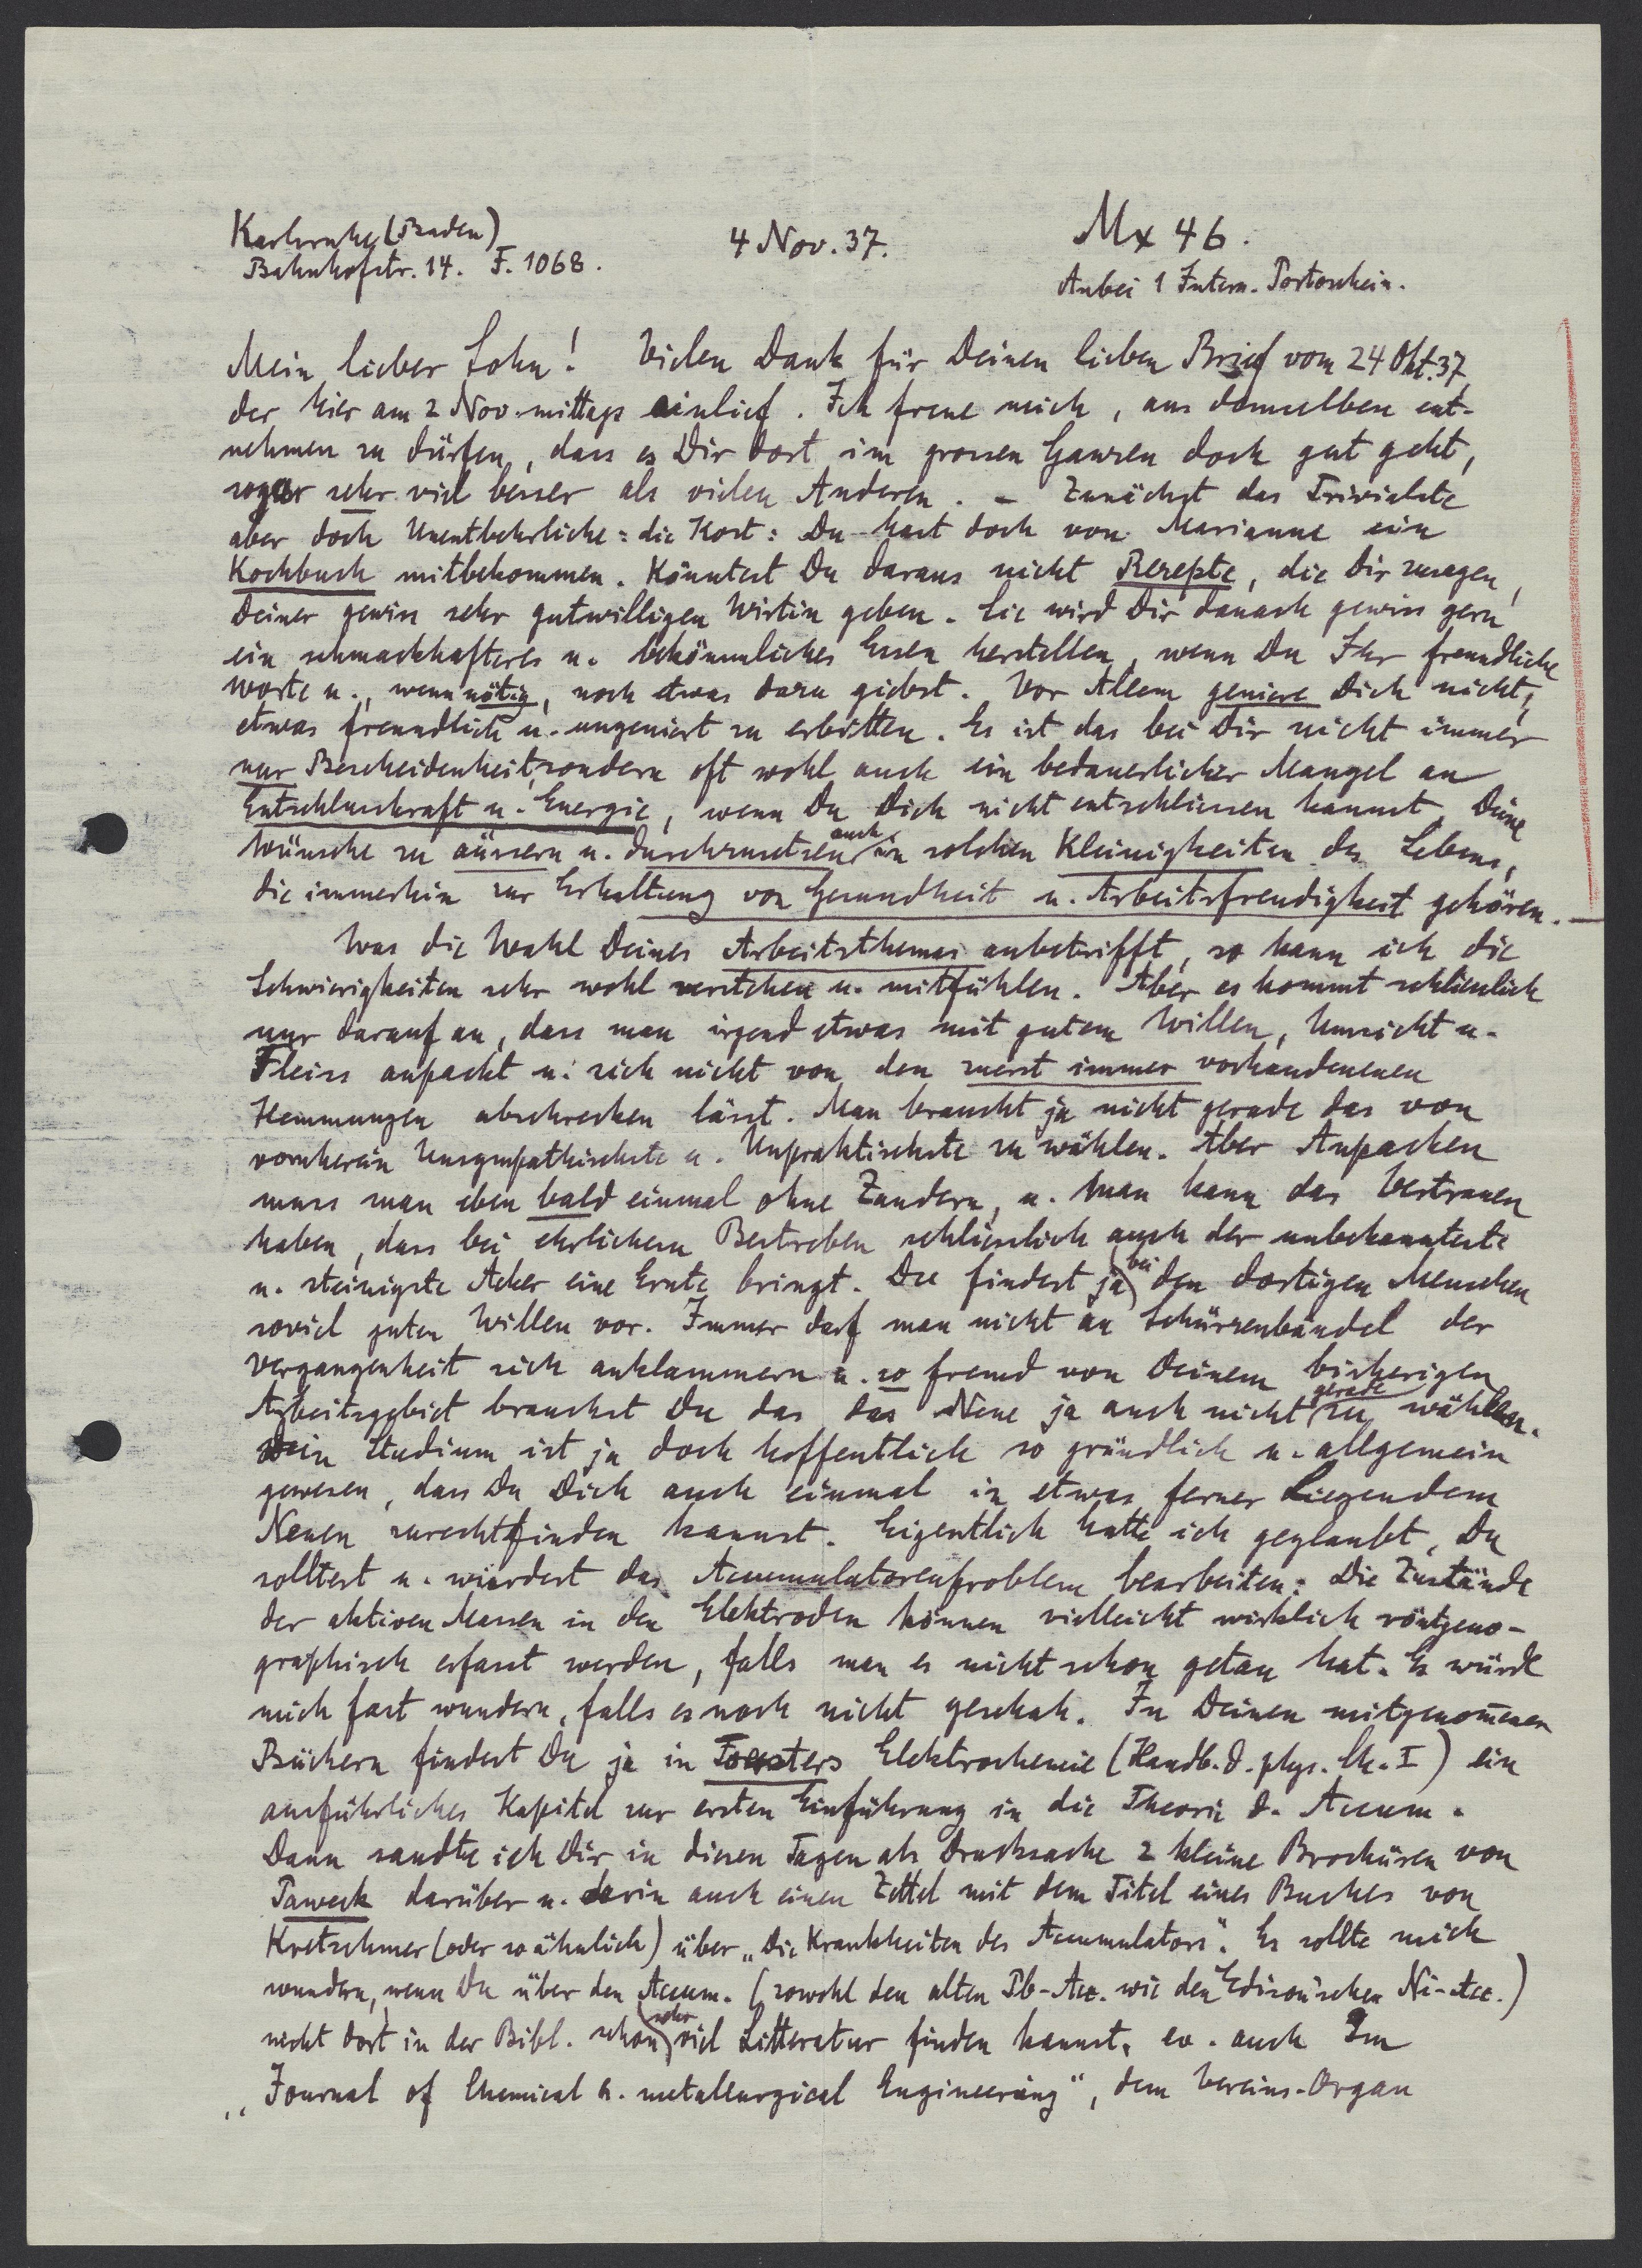 Karlsruhe (Baden)
Bahnhofstr. 14. F. 1068.
4 Nov. 37.
Mx 46.
Anbei 1 Intern. Portoschein.
Mein lieber Sohn! Vielen Dank für Deinen lieben Brief vom 24 Okt. 37,
der hier am 2 Nov. mittags einlief. Ich freue mich, aus demselben ent-
nehmen zu dürfen, dass es Dir dort im grossen Ganzen doch gut geht,
sogar sehr viel besser als vielen Anderen. – Zunächst das Trivialste
aber doch Unentbehrliche: die Kost: Du hast doch von Marianne ein
Kochbuch mitbekommen. Könntest Du daraus nicht Rezepte, die Dir zusagen,
Deiner gewiss sehr gutwilligen Wirtin geben. Sie wird Dir danach gewiss gern
ein schmackhafteres u. bekömmliches Essen herstellen, wenn Du Ihr freundliche
Worte u., wenn nötig, noch etwas dazu giebst. Vor Allem geniere Dich nicht,
etwas freundlich u. ungeniert zu erbitten. Es ist das bei Dir nicht immer
nur Bescheidenheit, sondern oft wohl auch ein bedauerlicher Mangel an
Entschlusskraft u. Energie, wenn Du Dich nicht entschliessen kannst, Deine
Wünsche zu äussern u. durchzusetzen auch in solchen Kleinigkeiten des Lebens,
die immerhin zur Erhaltung von Gesundheit u. Arbeitsfreudigkeit gehören. –
Was die Wahl Deines Arbeitsthemas anbetrifft, so kann ich die
Schwierigkeiten sehr wohl verstehen u. mitfühlen. Aber es kommt schliesslich
nur darauf an, dass man irgend etwas mit gutem Willen, Umsicht u.
Fleiss anpackt u. sich nicht von den zuerst immer vorhandenenen
Hemmungen abschrecken lässt. Man braucht ja nicht gerade das von
vornherein Unsympathischste u. Unpraktischste zu wählen. Aber Anpacken
muss man eben bald einmal ohne Zaudern, u. man kann das Vertrauen
haben, dass bei ehrlichem Bestreben schliesslich auch der unbekannteste
u. steinigste Acker eine Ernte bringt. Du findest ja bei den dortigen Menschen
soviel guten Willen vor. Immer darf man nicht an Schürzenbändel der
Vergangenheit sich anklammern u. so fremd von Deinem bisherigen
Arbeitsgebiet brauchst Du das das Neue ja auch nicht gerade zu wählen.
Dein Studium ist ja doch hoffentlich so gründlich u. allgemein
gewesen, dass Du Dich auch einmal in etwas ferner Liegendem
Neuen zurechtfinden kannst. Eigentlich hatte ich geglaubt, Du
solltest u. würdest das Accumulatorenproblem bearbeiten: Die Zustände
der aktiven Massen in den Elektroden können vielleicht wirklich röntgeno-
graphisch erfasst werden, falls man es nicht schon getan hat. Es würde
mich fast wundern, falls es noch nicht geschah. In Deinen mitgenom̄enen
Büchern findest Du ja in Foersters Elektrochemie (Handb. d. phys. Ch. I) ein
ausführliches Kapitel zur ersten Einführung in die Theorie d. Accum.
Dann sandte ich Dir in diesen Tagen als Drucksache 2 kleine Brochüren von
Paweck darüber u. darin auch einen Zettel mit dem Titel eines Buches von
Kretschmer (oder so ähnlich) über „Die Krankheiten des Accumulators". Es sollte mich
wundern, wenn Du über den Accum. (sowohl den alten Pb-Acc. wie den Edison'schen Ni-Acc.)
nicht dort in der Bibl. schon sehr viel Litteratur finden kannst, ev. auch Im
„Journal of Chemical a. metallurgical Engineering", dem Vereins-Organ